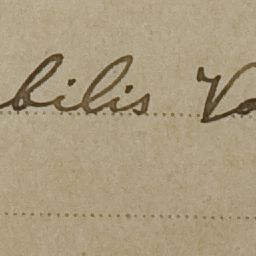 bilis Va